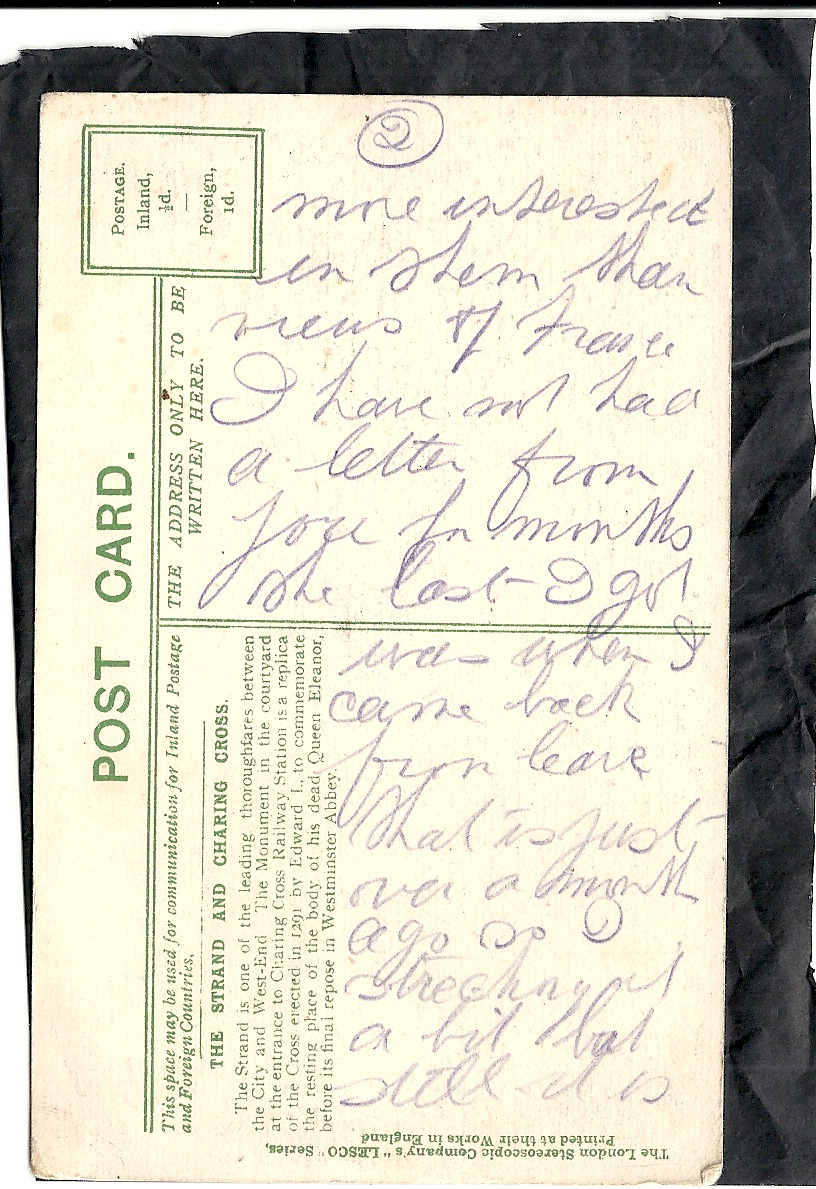 POST CARD.
POSTAGE.
Inland,
½d.
—
Foreign,
1d.
THE ADDRESS ONLY TO BE
WRITTEN HERE.
This space may be used for communication for Inland Postage
and Foreign Countries.
THE STRAND AND CHARING CROSS.
The Strand is one of the leading thoroughfares between
the City and West-End The Monument in the courtyard
at the entrance to Charing Cross Railway Station is a replica
of the Cross erected in 1291 by Edward I., to commemorate
the resting place of the body of his dead Queen Eleanor,
before its final repose in Westminster Abbey.
The London Stereoscopic Company's "LESCO" Series,
Printed at their Works in England
2
more interested
in them than
views of France
I have not had
a letter from
for months
the last I got
was when I
came back
from leave
that is just
over a month
ago so I
a bit but
still it is